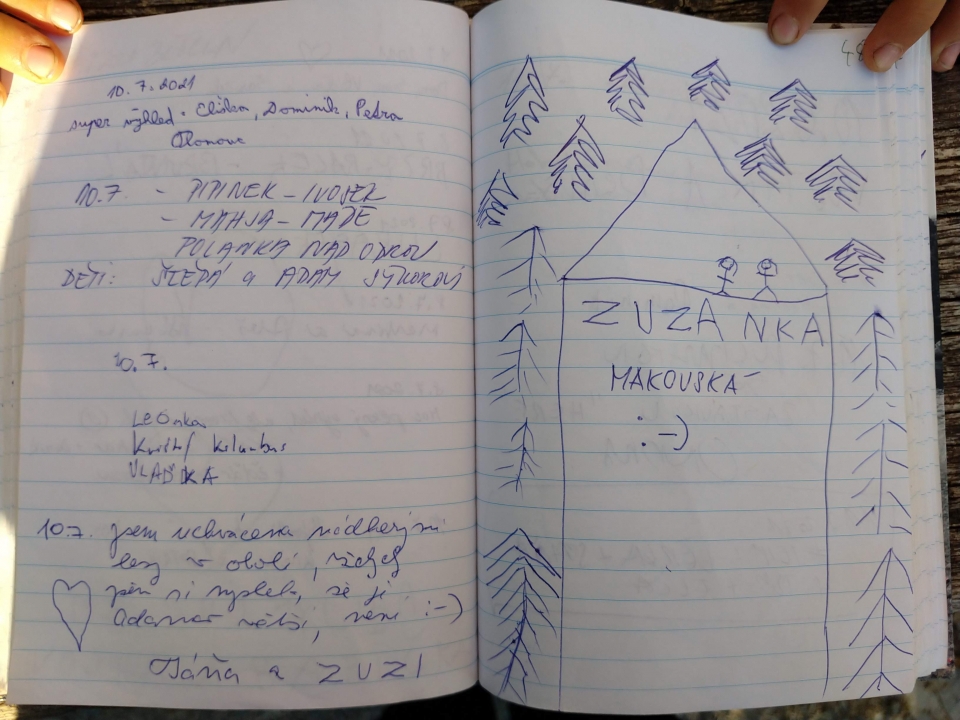 10.7.2021
super výhled. Eliška, Dominik, Petra
10.7. - PIPINEK - IVOJEK
- MAHJA - MAĎE
POLANKA NAD ODROU
DĚTI: ŠTĚPÁ a ADAM SÝKOROVI
10.7.
Leonka
VLAĎKA
10.7. jsem uchvácena nádhernými
lesy v okolí, vždy
jsem si myslela, že je
větší, není :-)
Táňa a ZUZI
48
ZUZANKA
MAKOVSKÁ
:-)